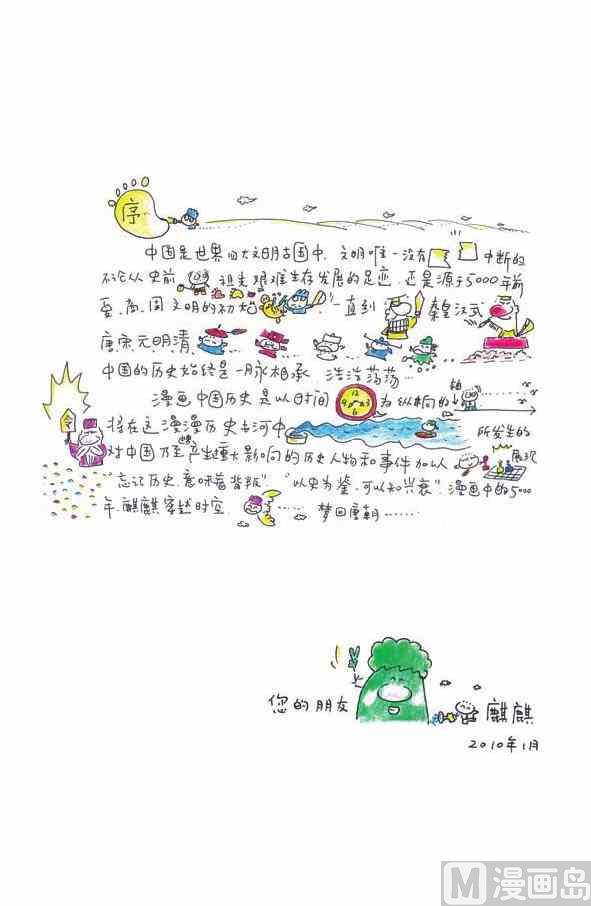 序
中国是世界四大文明古国中，文明唯一没有中断的
不论从史前祖先艰难生存发展的足迹，还是源于5000年前
夏、商、周文明的初始一直到秦皇汉武
唐宋元明清
中国的历史始终是一脉相承 浩浩荡荡…
漫画中国历史是以时间为纵横向的轴
将在这漫漫历史长河中所发生的
对中国乃至世界产生重大影响的历史人物和事件加以展现
"忘记历史，意味着背叛"，"以史为鉴，可以知兴衰"，漫画中的5000
年，麒麒穿越时空，……梦回唐朝……
12
9
3
6
令
您的朋友
麒麒
2010年1月
M漫画岛